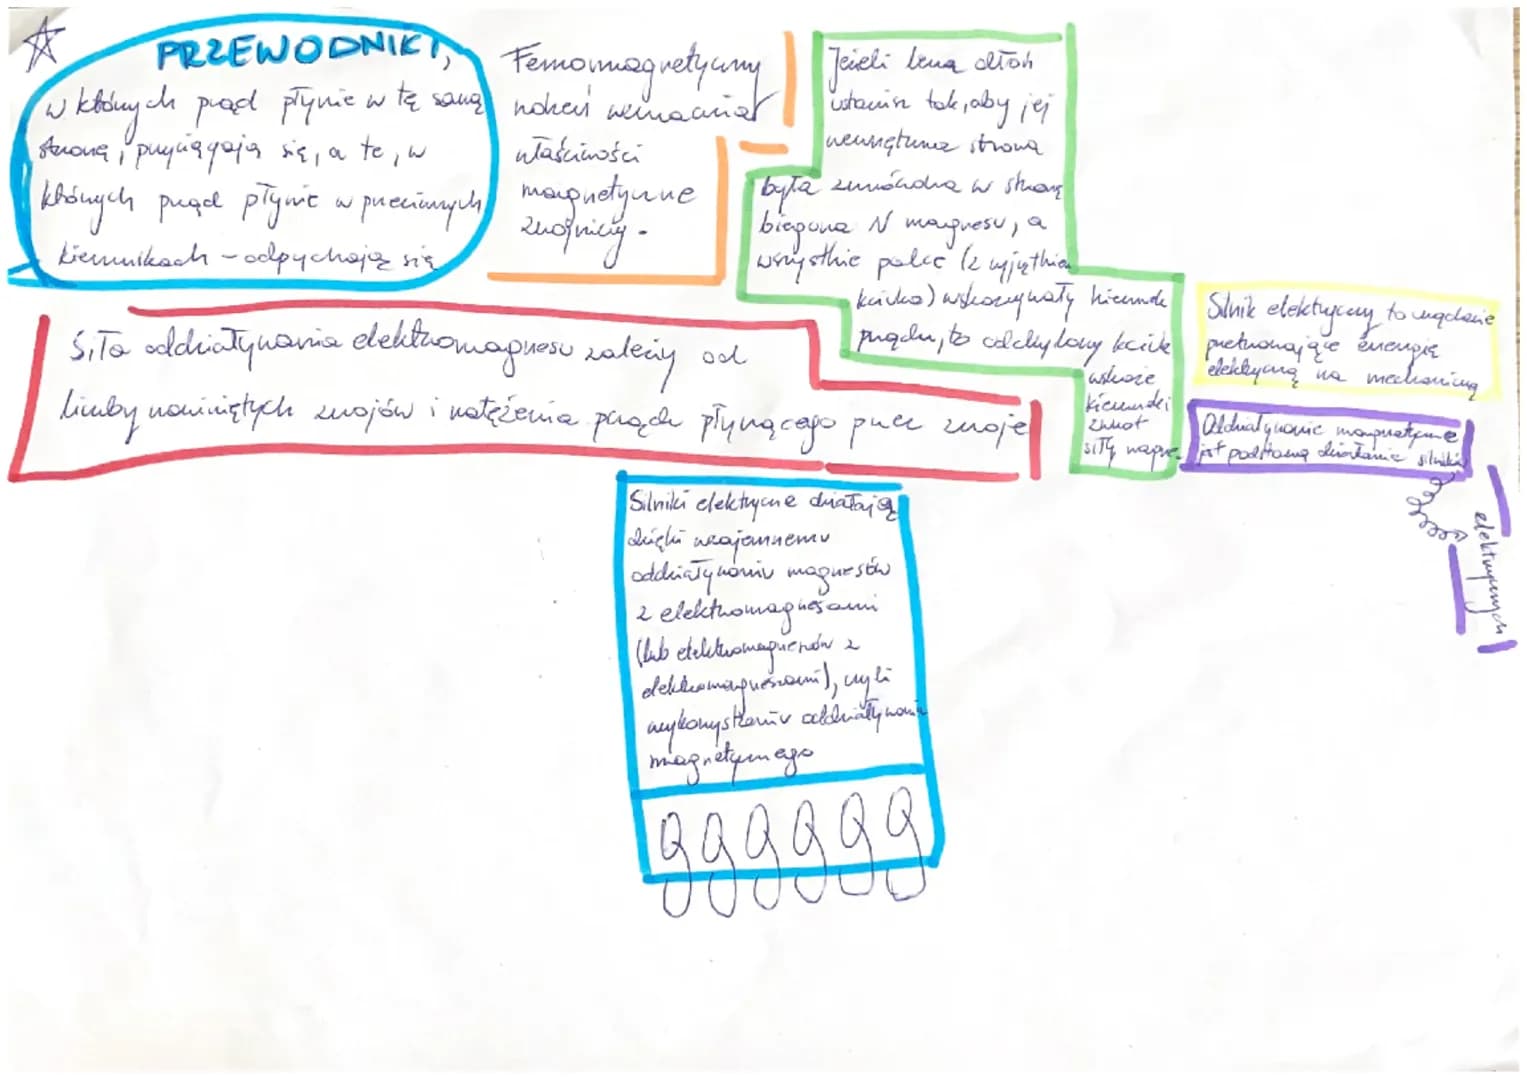 PRZEWODNIKI,
w których prąd płynie w tę samą
stronę, przyciągają się, a te, w
których prąd płynie w przeciwnych
kierunkach - odpychają się
Ferromagnetyczny
rdzeń wzmacnia
właściwości
magnetyczne
zwojnicy.
Jeżeli lewą dłoń
ustawisz tak, aby jej
wewnętrzna strona
była zwrócona w stronę
bieguna N magnesu, a
wszystkie palce (z wyjątkiem
kciuka) wskazywały kierunek
prądu, to odchylony kciuk
wskaże
kierunek i
zwrot
siły magne.
Siła oddziaływania elektromagnesu zależy od
liczby nawiniętych zwojów i natężenia prądu płynącego przez zwoje
Silnik elektryczny to urządzenie
przetwarzające energię
elektryczną na mechaniczną
Oddziaływanie magnetyczne
jest podstawą działania silników
elektrycznych
Silniki elektryczne działają
dzięki wzajemnemu
oddziaływaniu magnesów
z elektromagnesami
(lub elektromagnesów z
elektromagnesami), czyli
wykorzystaniu oddziaływania
magnetycznego